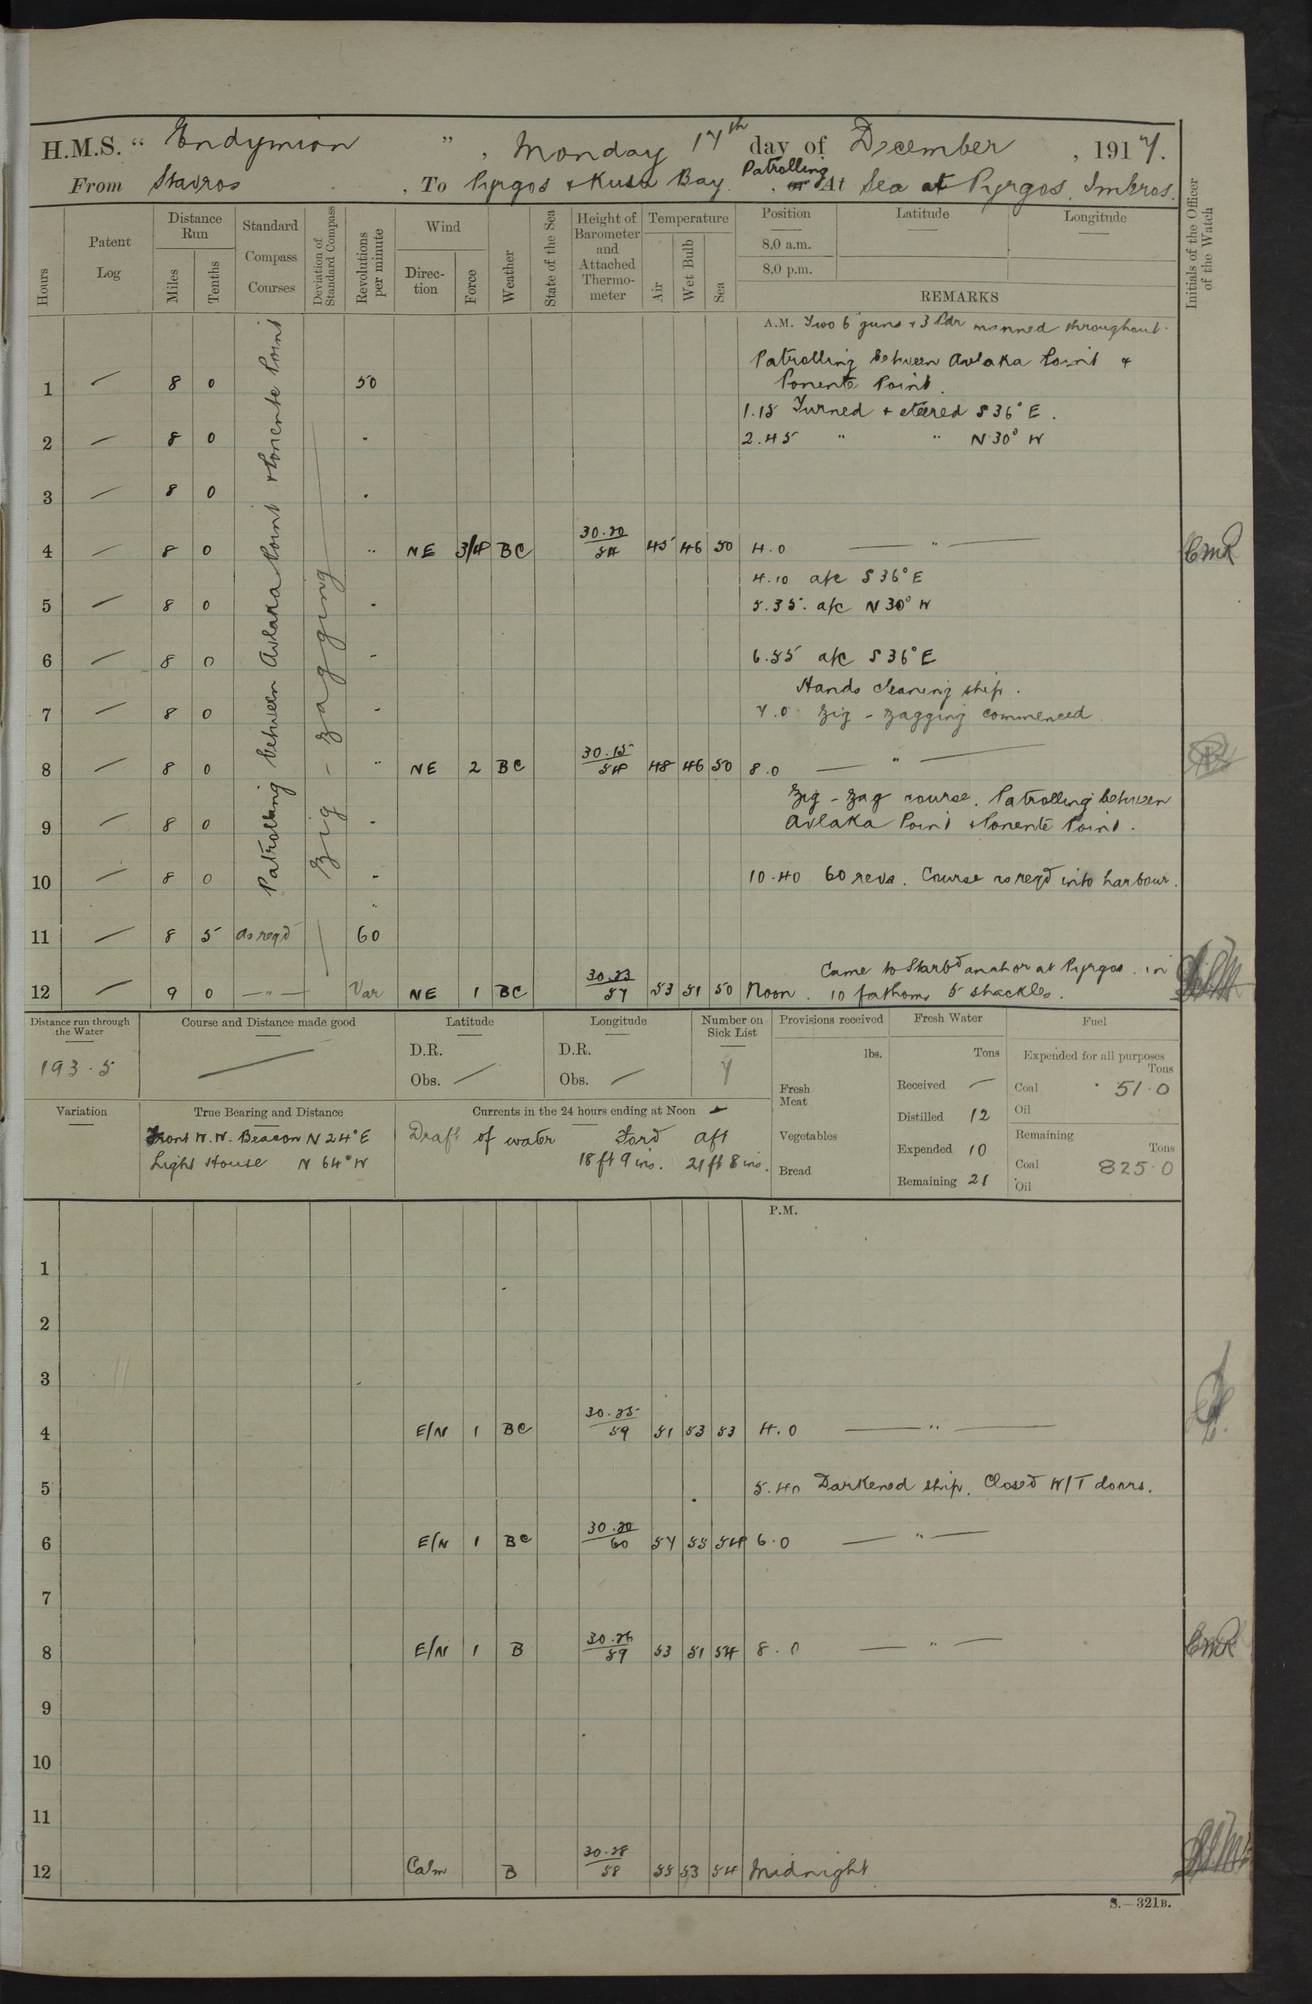 H.M.S. “ Endymion ” , Monday 17th day of December , 1917.
From Stavros , To Pyrgos & Kusu Bay. Patrolling or At Sea at Pyrgos, Imbros.
Hours
Patent Log
Distance Run
Miles
Tenths
Standard Compass Courses
Deviation of Standard Compass
Revolutions per minute
Wind
Direction
Force
Weather
State of the Sea
Height of Barometer and Attached Thermometer
Temperature
Air
Wet Bulb
Sea
Position
8.0 a.m.
8.0 p.m.
Latitude
Longitude
REMARKS
Initials of the Officer of the Watch
Patrolling between Avlaka Point & Ponente Point
Zig - zagging
A.M. Two 6" guns & 3 Pdr manned throughout.
Patrolling between Avlaka Point &
1 — 8 0 50 Ponente Point.
1.15 Turned & steered S 36° E.
2 — 8 0 " 2.45 " " N 30° W
3 — 8 0 "
4 — 8 0 " NE 3/4 BC 30.20/54 45 46 50 4.0 — " — CMR
4.10 a/c S 36° E
5 — 8 0 " 5.35. a/c N 30° W
6 — 8 0 " 6.55 a/c S 36° E
Hands cleaning ship.
7 — 8 0 " 7.0 Zig - zagging commenced.
8 — 8 0 " NE 2 BC 30.15/54 48 46 50 8.0 — " —
Zig - zag course. Patrolling between
9 — 8 0 " Avlaka Point & Ponente Point.
10 — 8 0 " 10.40 60 revs. Course as reqd into harbour.
"
11 — 8 5 as reqd 60
Came to Starbd anchor at Pyrgos. in
12 — 9 0 — " — Var NE 1 BC 30.23/57 53 51 50 Noon. 10 fathoms 5 shackles.
Distance run through the Water
193.5
Course and Distance made good
—
Latitude
D.R.
Obs. —
Longitude
D.R.
Obs. —
Number on Sick List
7
Provisions received
lbs.
Fresh Meat
Vegetables
Bread
Fresh Water
Tons
Received —
Distilled 12
Expended 10
Remaining 21
Fuel
Expended for all purposes
Tons
Coal 51.0
Oil
Remaining
Tons
Coal 825.0
Oil
Variation
True Bearing and Distance
Front W.W. Beacon N 24° E
Light House N 64° W
Currents in the 24 hours ending at Noon
Draft of water Ford aft
18 ft 9 ins. 21 ft 8 ins.
P.M.
1
2
3
4 E/N 1 BC 30.25/59 51 53 53 4.0 — " —
5 5.40 Darkened ship. Closed W/T doors.
6 E/N 1 BC 30.20/60 57 55 54 6.0 — " —
7
8 E/N 1 B 30.26/59 53 51 54 8.0 — " — CMR
9
10
11
12 Calm B 30.28/58 55 53 54 Midnight
S.—321B.